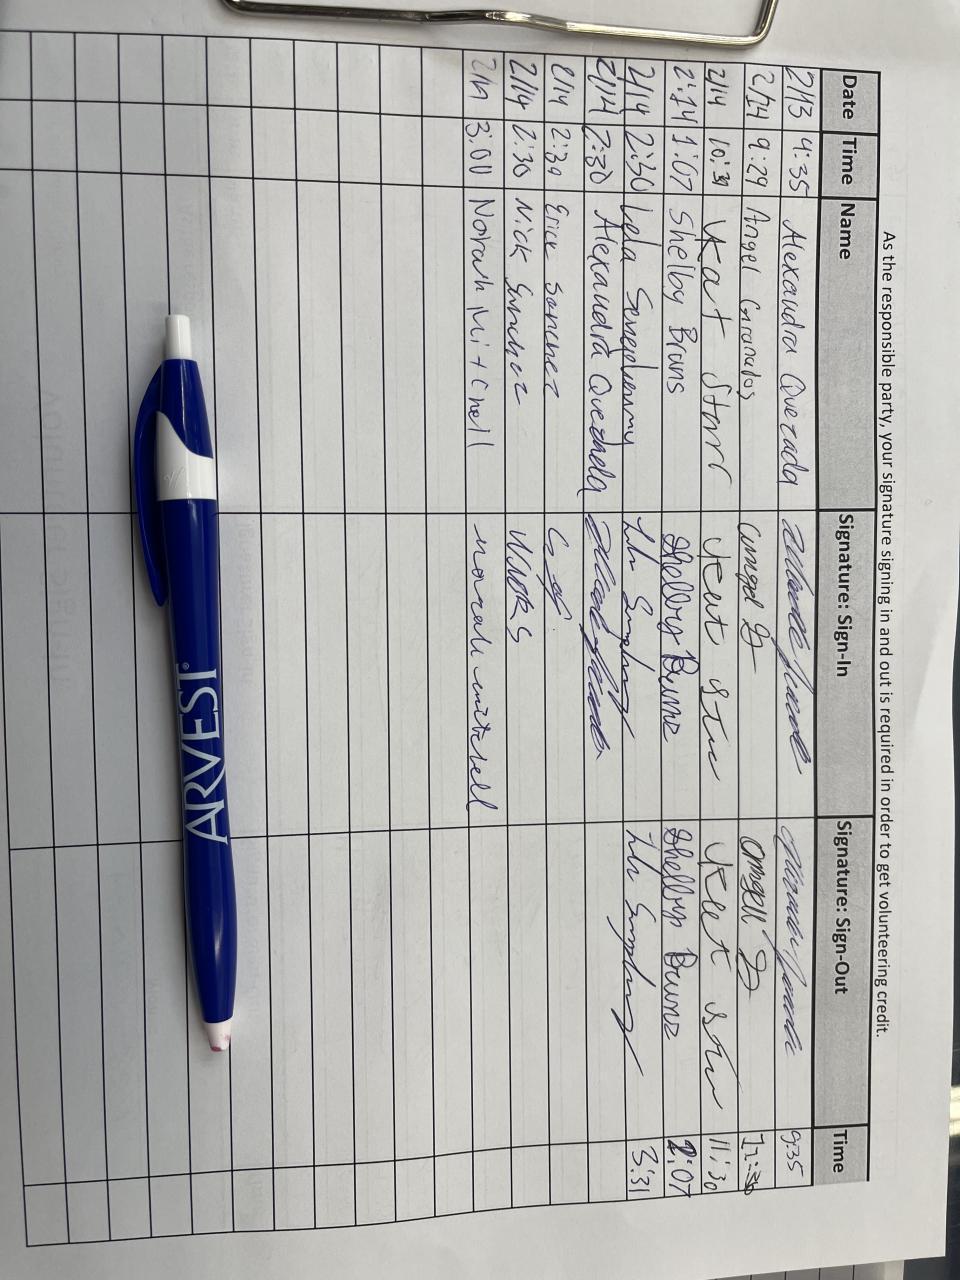 As the responsible party, your signature signing in and out is required in order to get volunteering credit.
Date Time Name Signature: Sign-In Signature: Sign-Out Time
2/13 4:35 Alexandra Quezada 9:35
2/14 9:29 Angel Granados angel G angel G
2/14 10:31 Kat Starr Kat Starr Kat Starr 11:30
2:14 1:07 Shelby Bruns Shelby Bruns Shelby Bruns 2:07
2/14 2:30 3:31
2/14 2:30 Alexandra Quezada
2/14 2:30 Erick Sanchez
2/14 2:30 Nick Sanchez
2/14 3:00 Norah Mitchell norah mitchell
ARVEST